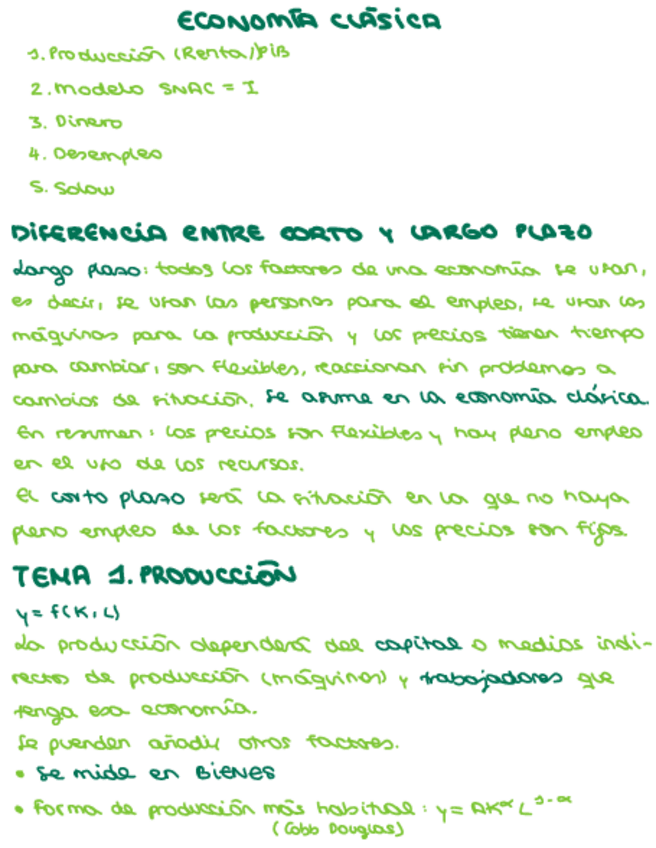 ECONOMÍA CLÁSICA
1. Producción (Renta)/PiB
2. Modelo SNAC = I
3. Dinero
4. Desempleo
5. Solow
DIFERENCIA ENTRE CORTO Y LARGO PLAZO
Largo plazo: todos los factores de una economía se usan,
es decir, se usan las personas para el empleo, se usan las
máquinas para la producción y los precios tienen tiempo
para cambiar, son flexibles, reaccionan sin problemas a
cambios de situación. Se asume en la economía clásica.
En resumen: los precios son flexibles y hay pleno empleo
en el uso de los recursos.
El corto plazo será la situación en la que no haya
pleno empleo de los factores y los precios son fijos.
TEMA 1. PRODUCCIÓN
y = f(K, L)
La producción dependerá del capital o medios indi-
rectos de producción (máquinas) y trabajadores que
tenga esa economía.
Se pueden añadir otros factores.
• Se mide en BIENES
• Forma de producción más habitual: y = AK^α L^1-α
(Cobb Douglas)